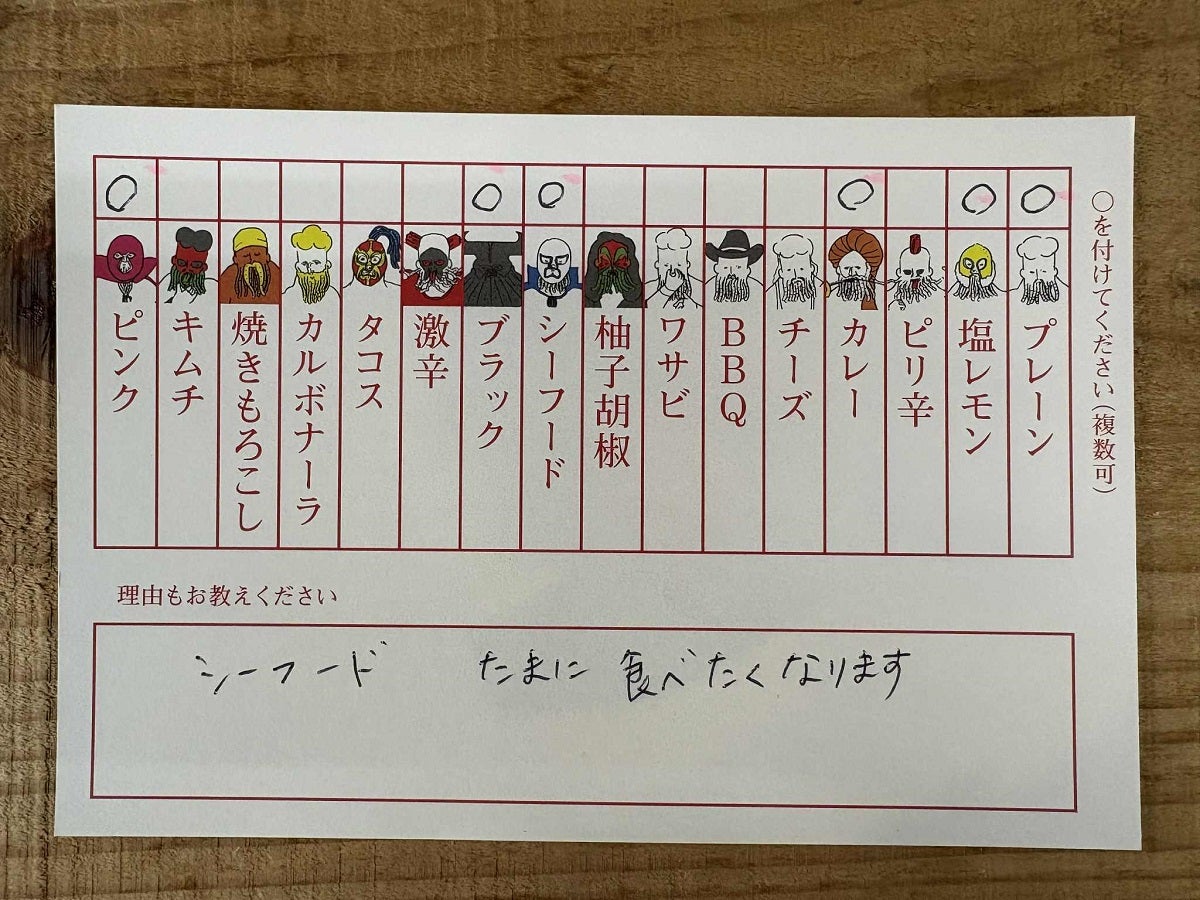 ○を付けてください(複数可)
プレーン
塩レモン
ピリ辛
カレー
チーズ
BBQ
ワサビ
柚子胡椒
シーフード
ブラック
激辛
タコス
カルボナーラ
焼きもろこし
キムチ
ピンク
理由もお教えください
シーフード たまに食べたくなります